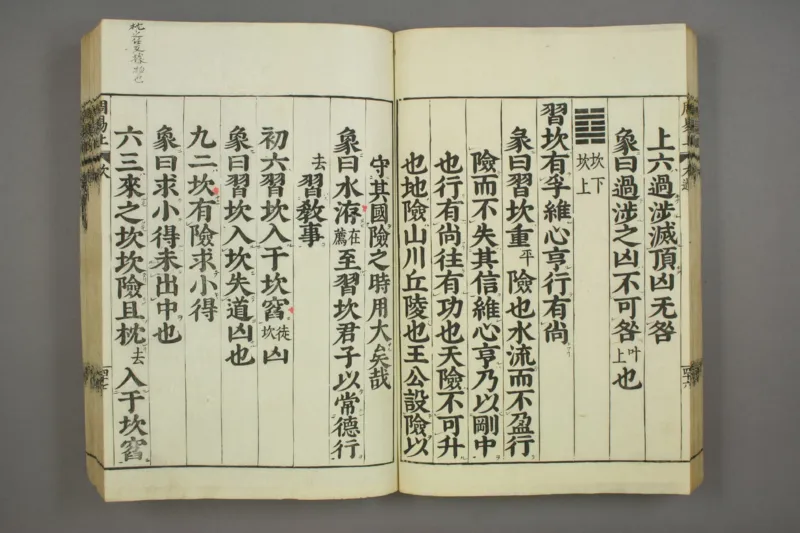 上六過涉滅頂凶无咎
象曰過涉之凶不可咎叶上也
䷜坎下坎上
習坎有孚維心亨行有尚
彖曰習坎重平險也水流而不盈行
險而不失其信維心亨乃以剛中
也行有尚往有功也天險不可升
也地險山川丘陵也王公設險以
守其國險之時用大矣哉
象曰水洊在薦至習坎君子以常德行
去習教事
初六習坎入于坎窞徒坎凶
象曰習坎入坎失道凶也
九二坎有險求小得
象曰求小得未出中也
六三來之坎坎險且枕去入于坎窞
周易上
坎
四十七
周易上
四十六